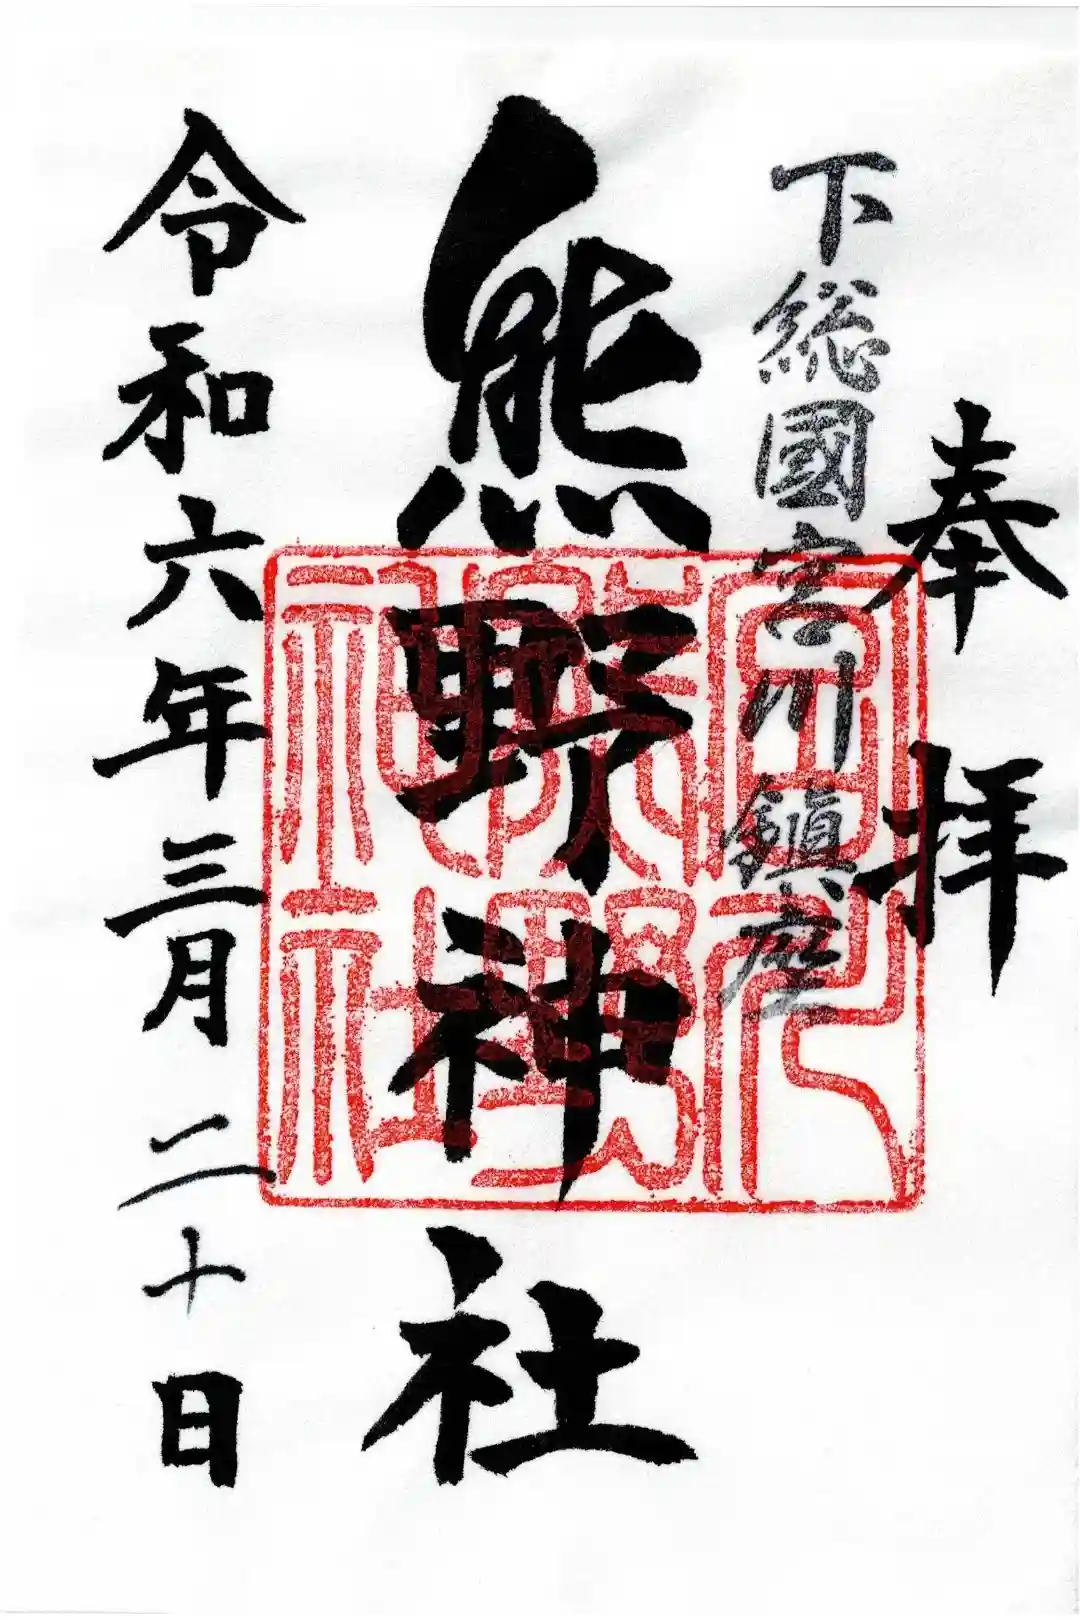 奉拝
下総國宮川鎮座
熊野神社
令和六年三月二十日
宮川
熊野
神社